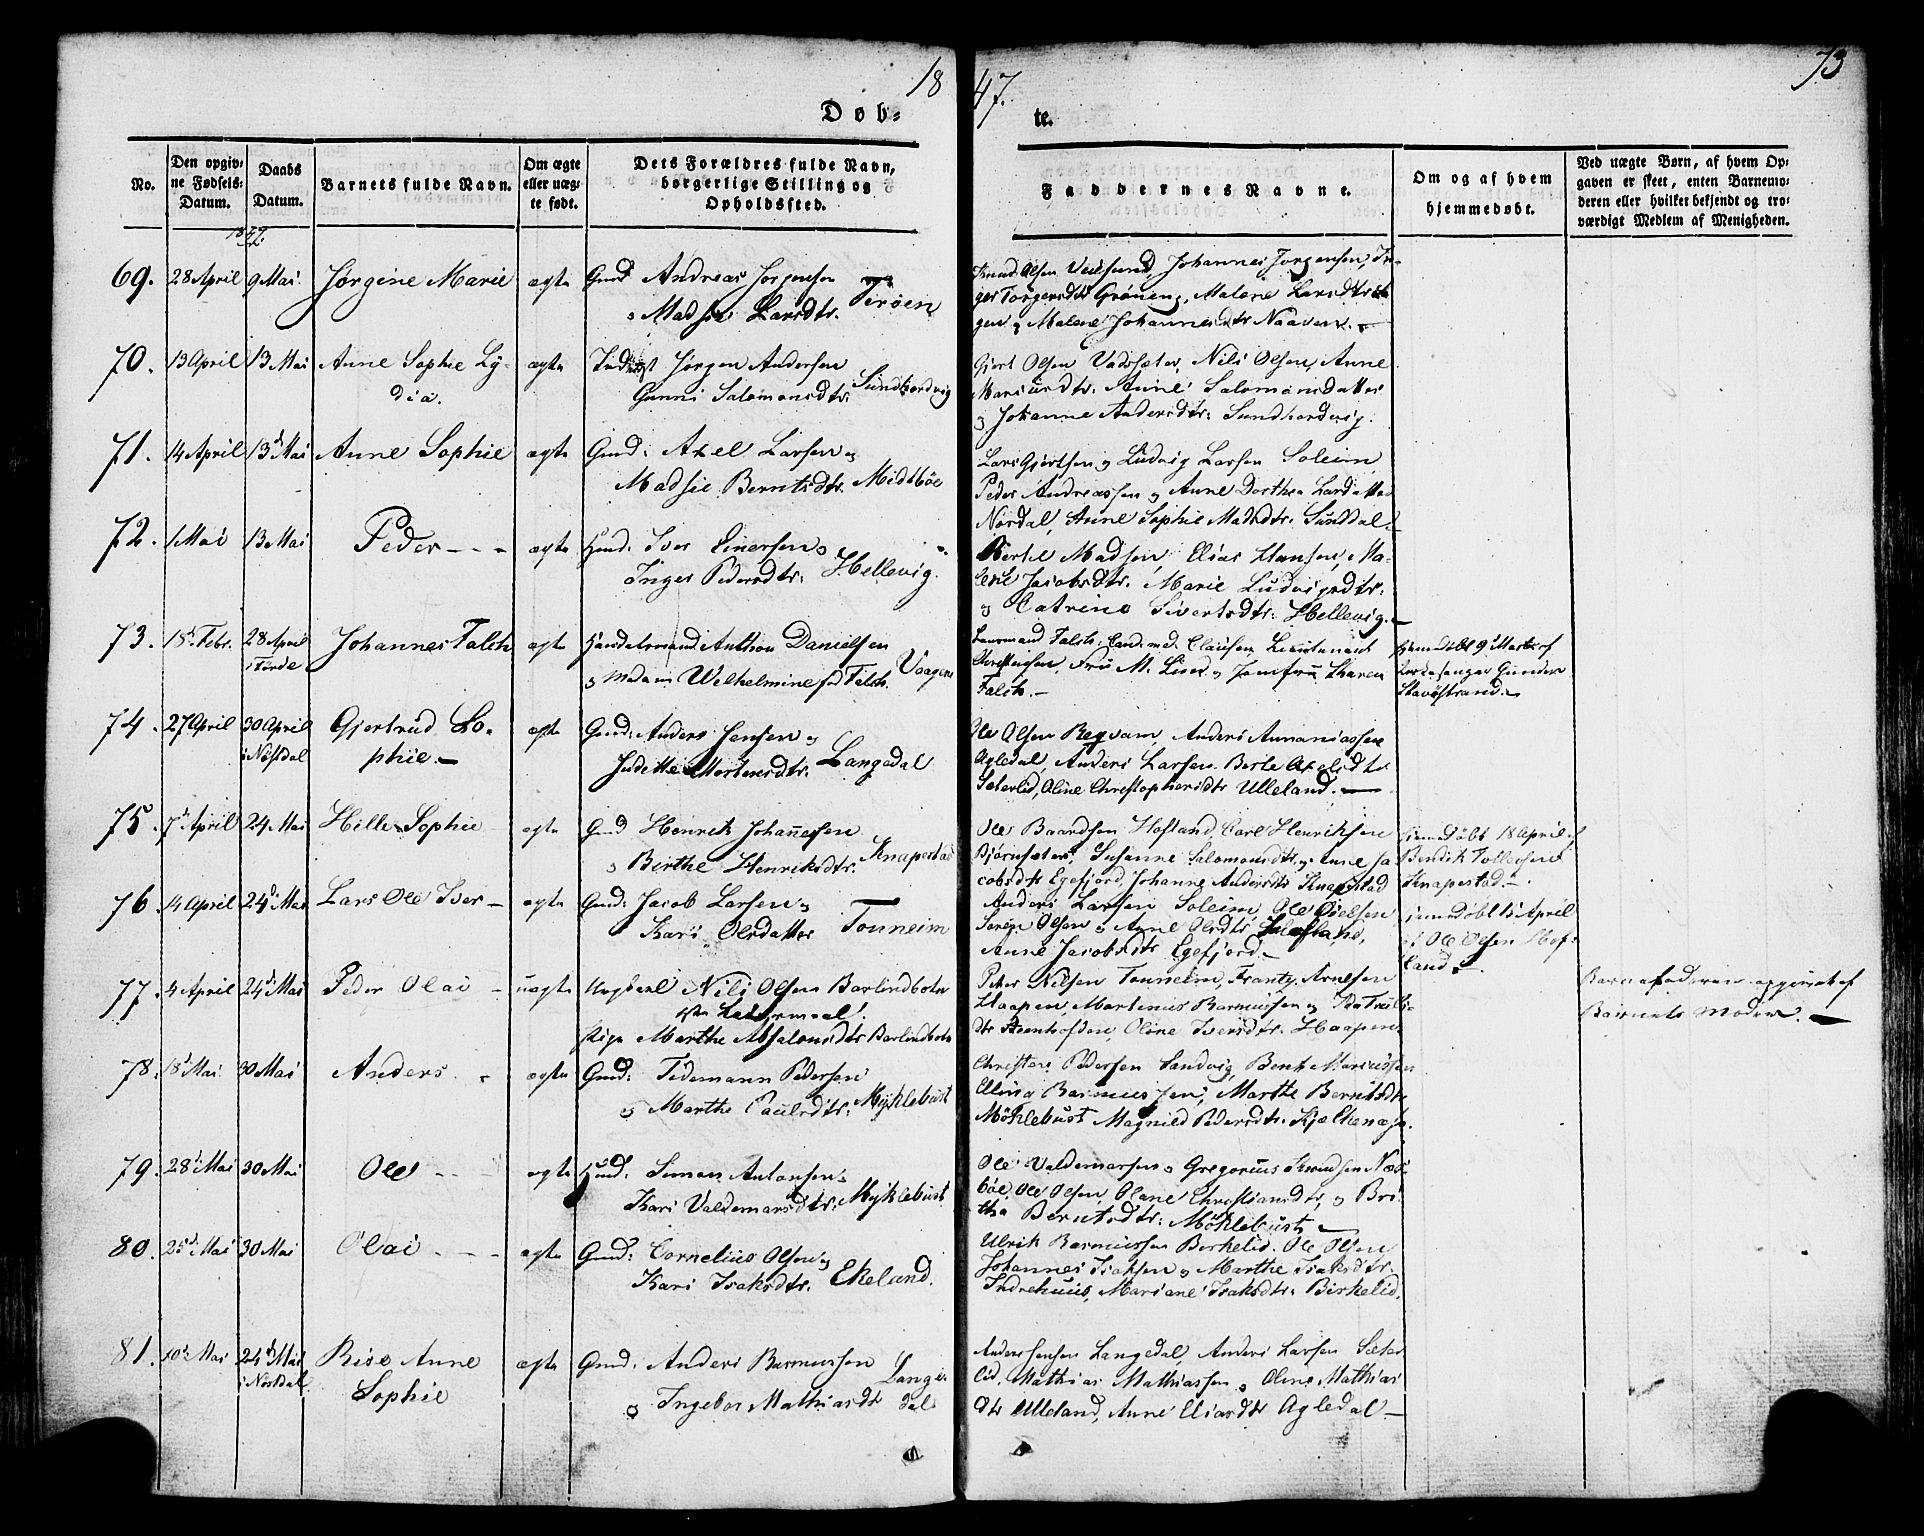 18
47.
73
Døb-
te.
No.
Den opgiv-
ne Fødsels-
Datum.
Daabs
Datum.
Barnets fulde Navn.
Om ægte
eller uæg-
te født.
Dets Forældres fulde Navn,
borgerlige Stilling og
Opholdssted.
Faddernes Navne.
Om og af hvem
hjemmedøbt.
Ved uægte Børn, af hvem Op-
gaven er skeet, enten Barnemo-
deren eller hvilket bekjendt og tro-
værdigt Medlem af Menigheden.
1847.
69. 28 April 9 Mai. Jørgine Marie ægte Gmd Andreas Jørgensen
o Madsie Larsdtr. Terøen
Knud Olsen Veiesund, Johannes Jørgensen, In-
ger Torgersdtr Grøneng, Malene Larsdtr
gen o Malene Johannesdtr Naaven.
70. 13 April 13 Mai Anne Sophie Ly-
dia.
ægte Inderst Jørgen Andersen
Gunni Salomonsdtr. Sundhordvig
Gjert Olsen Vadsæter, Nils Olsen, Anne
dtr. Anne Salomonsdatter
o Johanne Andersdtr. Sundhordvig.
71. 14 April 13 Mai Anne Sophie ægte Gmd: Axel Larsen o
Madsie Berntsdtr. Midtbøe
Lars Gjertsen o Ludvig Larsen Soleim,
Peder Andreassen o Anne Dorthea Larsdatter
Nordal, Anne Sophie Madsdtr. Sunddal.
72. 1 Mai 13 Mai Peder ægte Huusmd: Iver Einersen o
Inger Pedersdtr. Hellevig.
Bertel Madsen, Elias Hansen, Ma-
lene Jacobsdtr. Marie Ludvigsdtr.
o Catrine Sivertsdtr. Hellevig.
73. 18 Febr. 28 April
i Førde
Johannes Falch ægte Handelsmand Anthon Danielsen
o Madam Wilhelmine fød Falch. Vaagene
Lensmand Falch, Cand. med. Clausen Lieutenant
Christensen, Fru M. Lind o Jomfru Maren
Falch.
Hjemmedøbt 9 Marts af
Kirkesanger Gunder
Stavøstrand.
74. 27 April 30 April
i Nøstdal
Gjertrud So-
phie.
ægte Gmd: Anders Jensen o
Judithe Mortensdtr. Langedal
Ole Olsen Reqvam, Anders Annaniassen
Agledal, Anders Larsen. Berte Axelsdtr
Seterlid, Oline Christophersdtr Ulleland.
75. 7 April 24 Mai Hille Sophie ægte Gmd Henrik Johannesen
o Birthe Henriksdtr. Knapestad
Ole Baardsen Hofland, Carl Henriksen
Bjørnsæter, Susanne Salomonsdtr. o Anne Ja
cobsdtr Egefjord Johanne Andersdtr Knapstad
Hjemmedøbt 18 April af
Bendik Tollefsen
Knapestad.
76. 14 April 24 Mai Lars Ole Iver ægte Gmd: Jacob Larsen o
Kari Olsdatter Tonneim
Anders Larsen Soleim, Ole Nielsen
Søren Olsen o Anne Olsdtr Hofland,
Anne Jacobsdtr Egefjord.
Hjemmedøbt 15 April
af Ole Olsen Hof-
land.
77. 4 April 24 Mai Peder Olai uægte Ungkarl Nils Olsen Barlindbotn
1ste Leiermaal.
Pige Marthe Absalonsdtr Barlindbotn
Peter Nilsen Tonneim, Frants Arnesen
Haapen, Martinus Rasmussen o
dtr Steenhofden, Oline Iversdtr. Haapen.
Barnefaderen opgivet af
Barnets Moder.
78. 18 Mai 30 Mai Anders ægte Gmd: Tidemann Pedersen
o Marthe Paulsdtr. Myklebust
Christen Pedersen Sandvig, Bent Mariussen
Elling Rasmussen, Marthe Berntsdtr
Møklebust Magnild Pedersdtr. Kjelkenæs.
79. 28 Mai 30 Mai Ole ægte Huusmd: Simon Antonsen o
Kari Valdemarsdtr. Myklebust
Ole Valdemarsen o Gregorius Knudsen Næs-
bøe, Ole Olsen, Olane Christiansdtr, o Bri-
tha Berntsdtr. Møklebust.
80. 25 Mai 30 Mai Olai ægte Gmd: Cornelius Olsen o
Kari Isaksdtr. Ekeland.
Ulrik Rasmussen Birkelid. Ole Olsen
Johannes Isaksen o Marthe Isaksdtr.
Indrehuus, Mariane Isaksdtr. Birkelid.
81. 10 Mai 24 Mai
i Nøstdal.
Rise Anne
Sophie
ægte Gmd: Anders Rasmussen
o Ingebor Mathiasdtr Lange-
dal
Anders Jensen Langedal, Anders Larsen Sæter-
lid, Mathias Mathiassen, o Oline Mathias
dtr Ulleland, Anne Eliasdtr Agledal